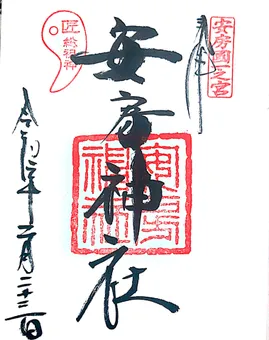 安房國一之宮
奉拝
匠総祖神
安房神社
安房神社
令和六年二月二十三日